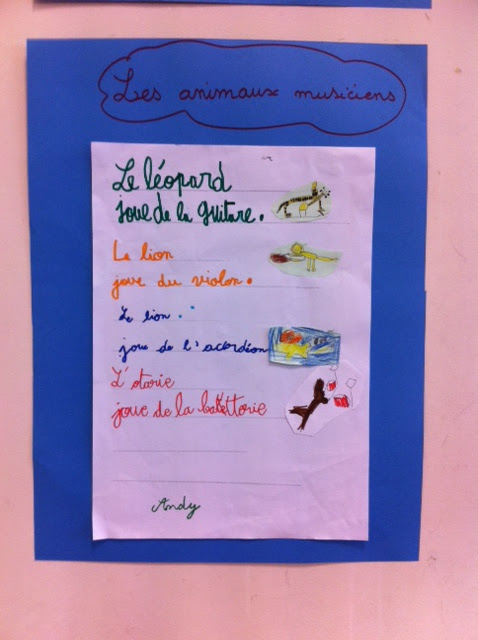 Les animaux musiciens
Le léopard
joue de la guitare.
Le lion
joue du violon.
Le lion.
joue de l'acordéon
L'otarie
joue de la batettorie
Andy